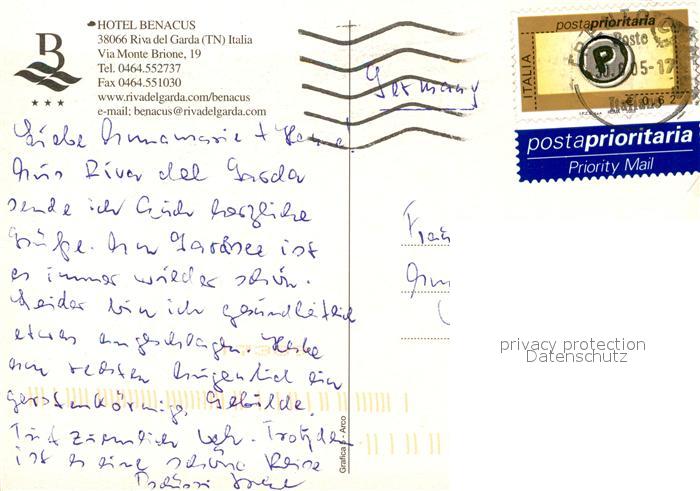 HOTEL BENACUS
38066 Riva del Garda (TN) Italia
Via Monte Brione, 19
Tel. 0464.552737
Fax 0464.551030
www.rivadelgarda.com/benacus
e-mail: benacus@rivadelgarda.com
B
★★★
postaprioritaria
ITALIA
P
Poste
05-17
Italiane
€ 0,62
postaprioritaria
Priority Mail
Germany
Liebe Annamarie +
Aus River del Garda
sende ich Euch herzliche
Grüße. Am Gardsee ist
es immer wieder schön.
Leider bin ich gesundheitlich
etwas angeschlagen. Habe
am rechten Augenlid ein
gerstenkörnig. Gebilde.
Tut ziemlich weh. Trotzdem
ist es eine schöne Reise
Grafica - Arco
privacy protection
Datenschutz